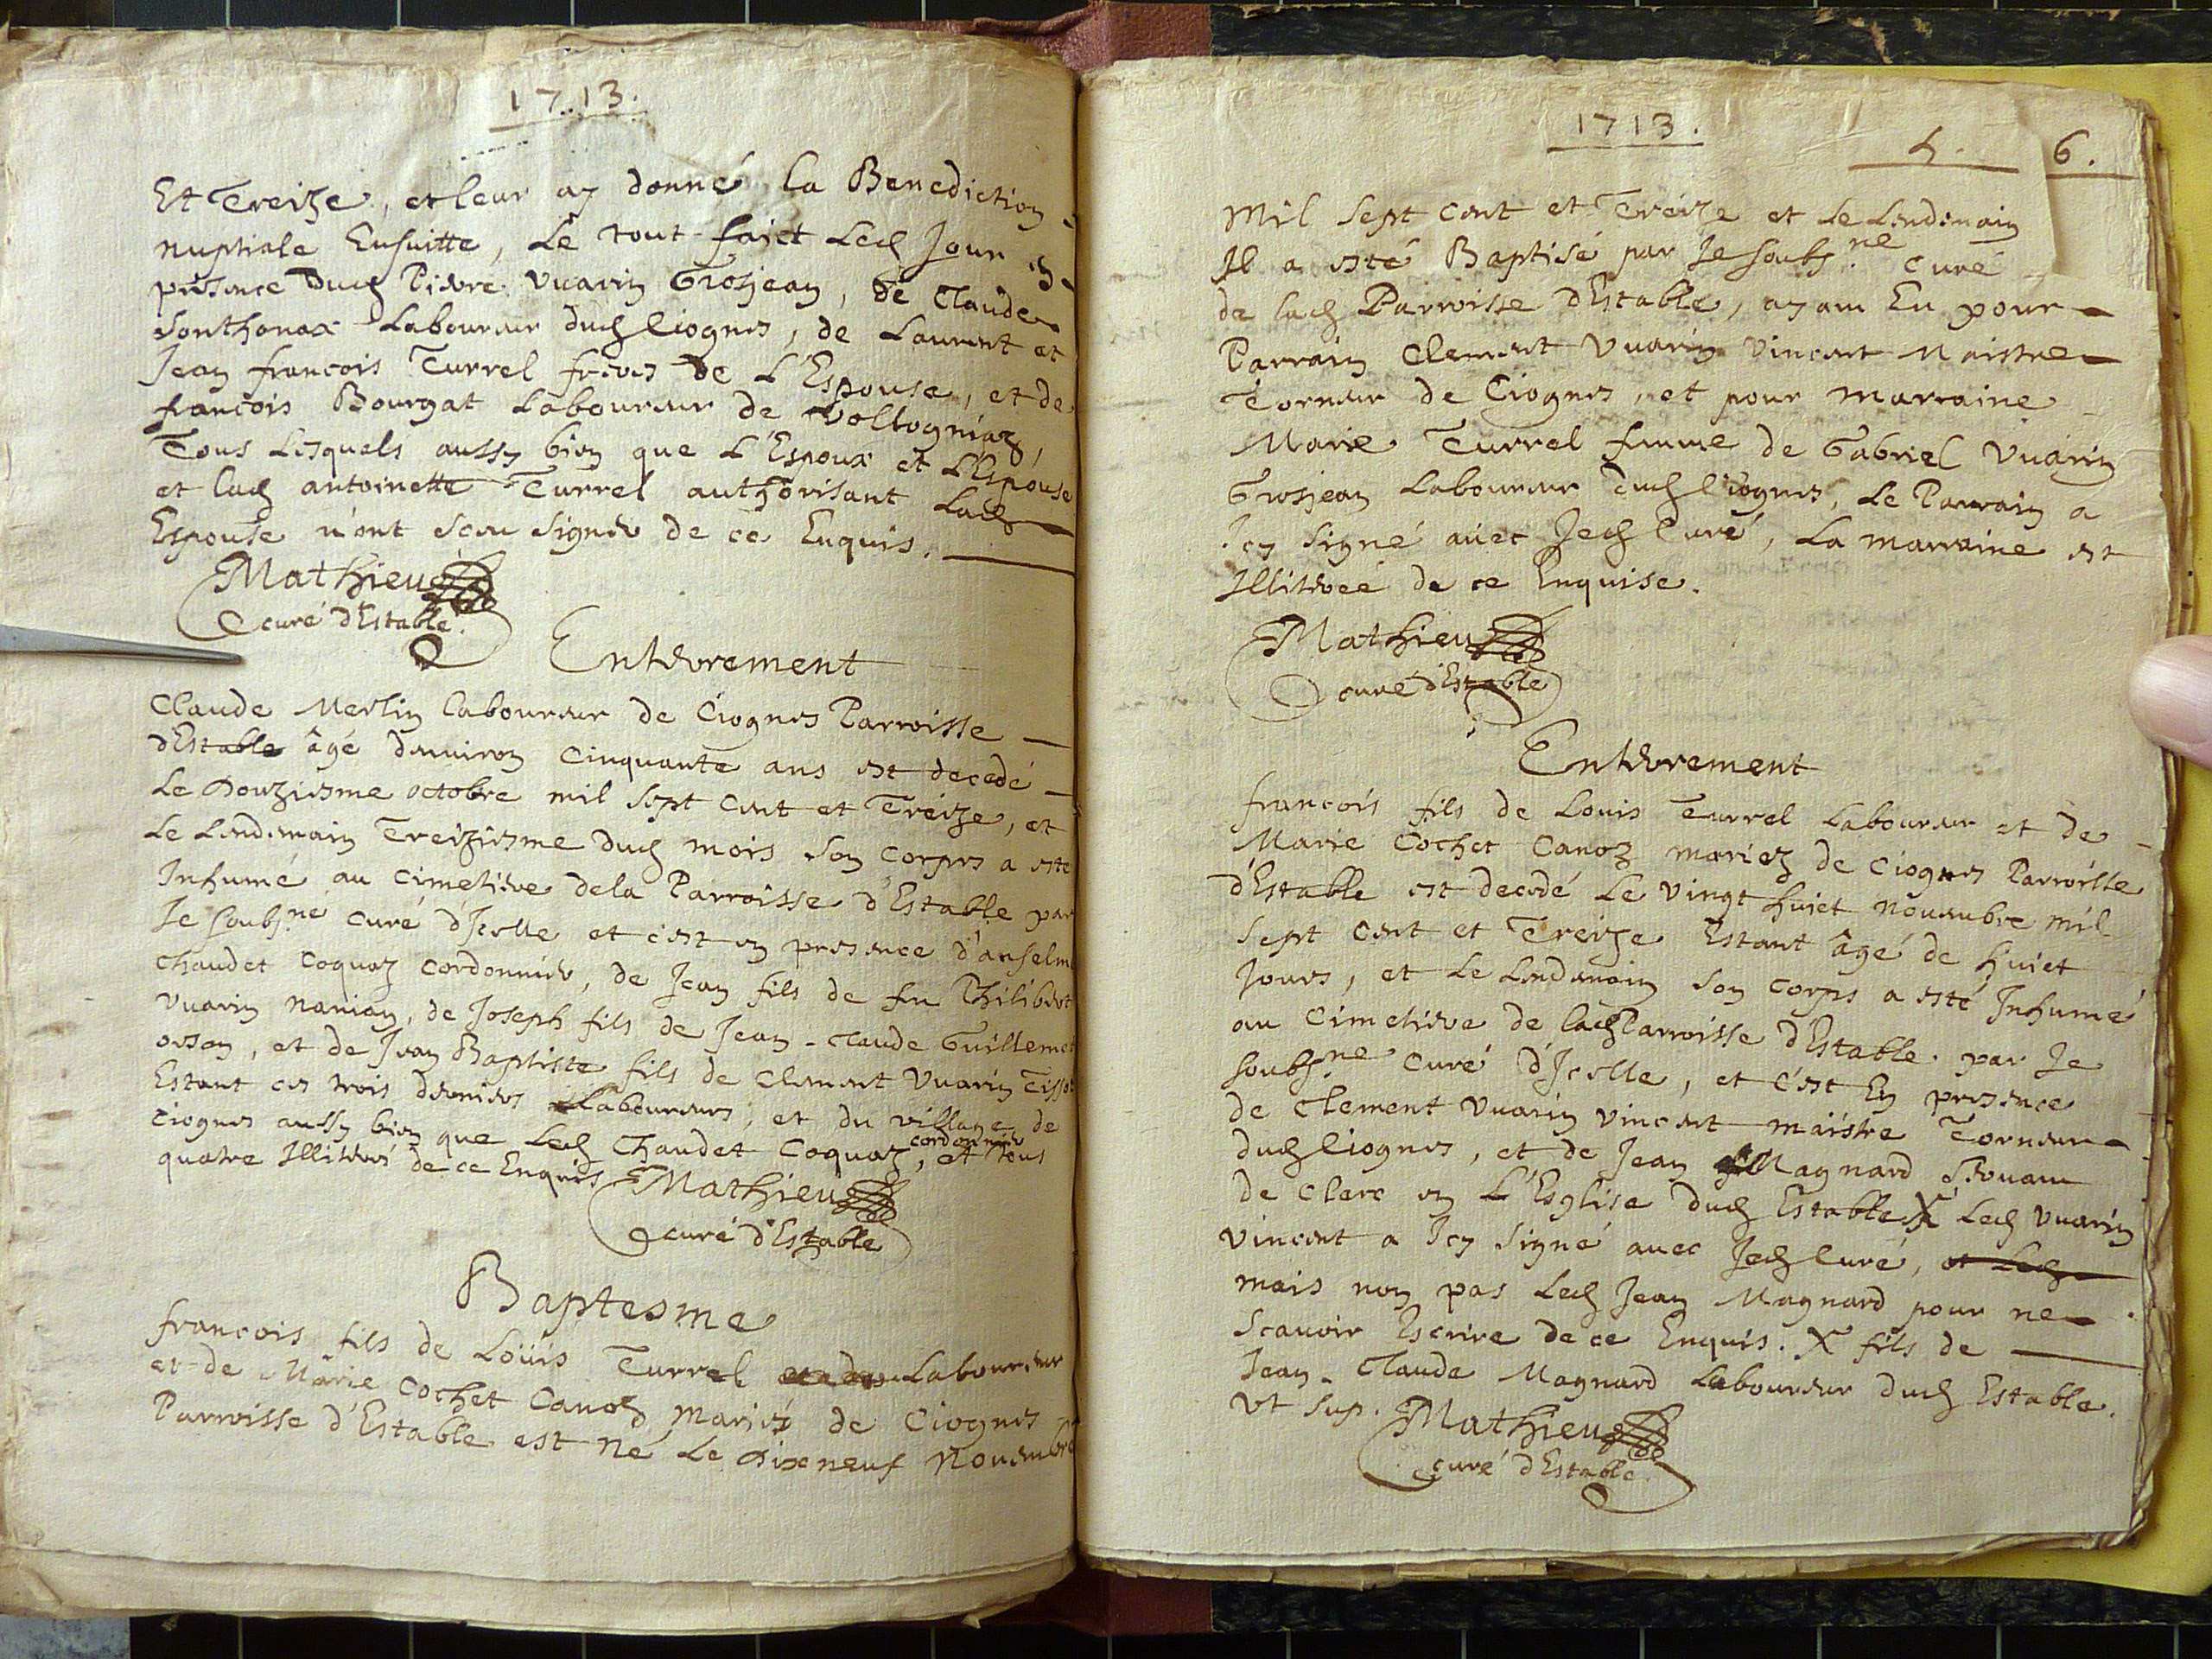 1713.
Et Treize, et leur ay donné la Benediction
nuptiale Ensuitte, Le tout faict Led Jour en
presence dud Pierre Vuarin Grosjean, de Claude
Sonthonax Laboureur dud Ciognes, de Laurent et
Jean francois Turrel freres de L'Espouse, et de
francois Bourgat Laboureur de Volbogniaz,
Tous Lesquels aussy bien que L'Espoux et L'Espouse
et lad antoinette Turrel authorisant Lad
Espouse n'ont sceu signer de ce Enquis.
Mathieu
curé d'Estable.
Enterrement
Claude Merlin laboureur de Ciognes Parroisse
d'Estable âgé d'environ Cinquante ans est decedé
Le Douziesme octobre mil sept cent et Treize, et
Le Lendemain Treiziesme dud mois son corps a esté
Inhumé au cimetiere dela Parroisse d'Estable par
Je soubs.né curé d'Icelle et c'est en presence d'anselme
chaudet Coquaz cordonnier, de Jean fils de feu Philibert
Vuarin nanian, de Joseph fils de Jean-Claude Guillemet
orsan, et de Jean Baptiste fils de Clement Vuarin Tissot
Estant ces trois derniers Laboureurs, et du village de
Ciognes aussy bien que Led Chaudet Coquaz cordonnier, et tous
quatre Illiterés de ce Enquis
Mathieu
curé d'Estable
Baptesme
francois fils de Loüis Turrel et de Laboureur
et de Marie Cochet Canoz mariés de Ciognes
Parroisse d'Estable est né Le Dixneuf Novembre
1713.
6.
Mil sept cent et Treize et Le Lendemain
Il a esté Baptisé par Je soubs.né Curé
de lad Parroisse d'Estable, ayant Eu pour
Parrain Clement Vuarin Vincent Maistre
Torneur de Ciognes, et pour marraine
Marie Turrel femme de Gabriel Vuarin
Grosjean Laboureur dud Ciognes, Le Parrain a
Icy signé avec Jed Curé, La marraine est
Illiterée de ce Enquise.
Mathieu
curé d'Estable
Enterrement
francois fils de Louis Turrel Laboureur et de
Marie Cochet Canoz mariez de Ciognes Parroisse
d'Estable est decedé Le vingt huict Novembre mil
sept cent et Treize Estant âgé de huict
jours, et Le Lendemain son corps a esté Inhumé
au Cimetiere de lad Parroisse d'Estable par Je
soubs.né Curé d'Icelle, et c'est En presence
de Clement Vuarin Vincent maistre Torneur
dud Ciognes, et de Jean Magnard servant
de Clerc en L'Esglise dud Estable X Led Vuarin
Vincent a Icy signé avec Jed Curé, et Led
mais non pas Led Jean Magnard pour ne
scavoir Escrire de ce Enquis. X fils de
Jean-Claude Magnard Laboureur dud Estable.
Vt sup.
Mathieu
curé d'Estable